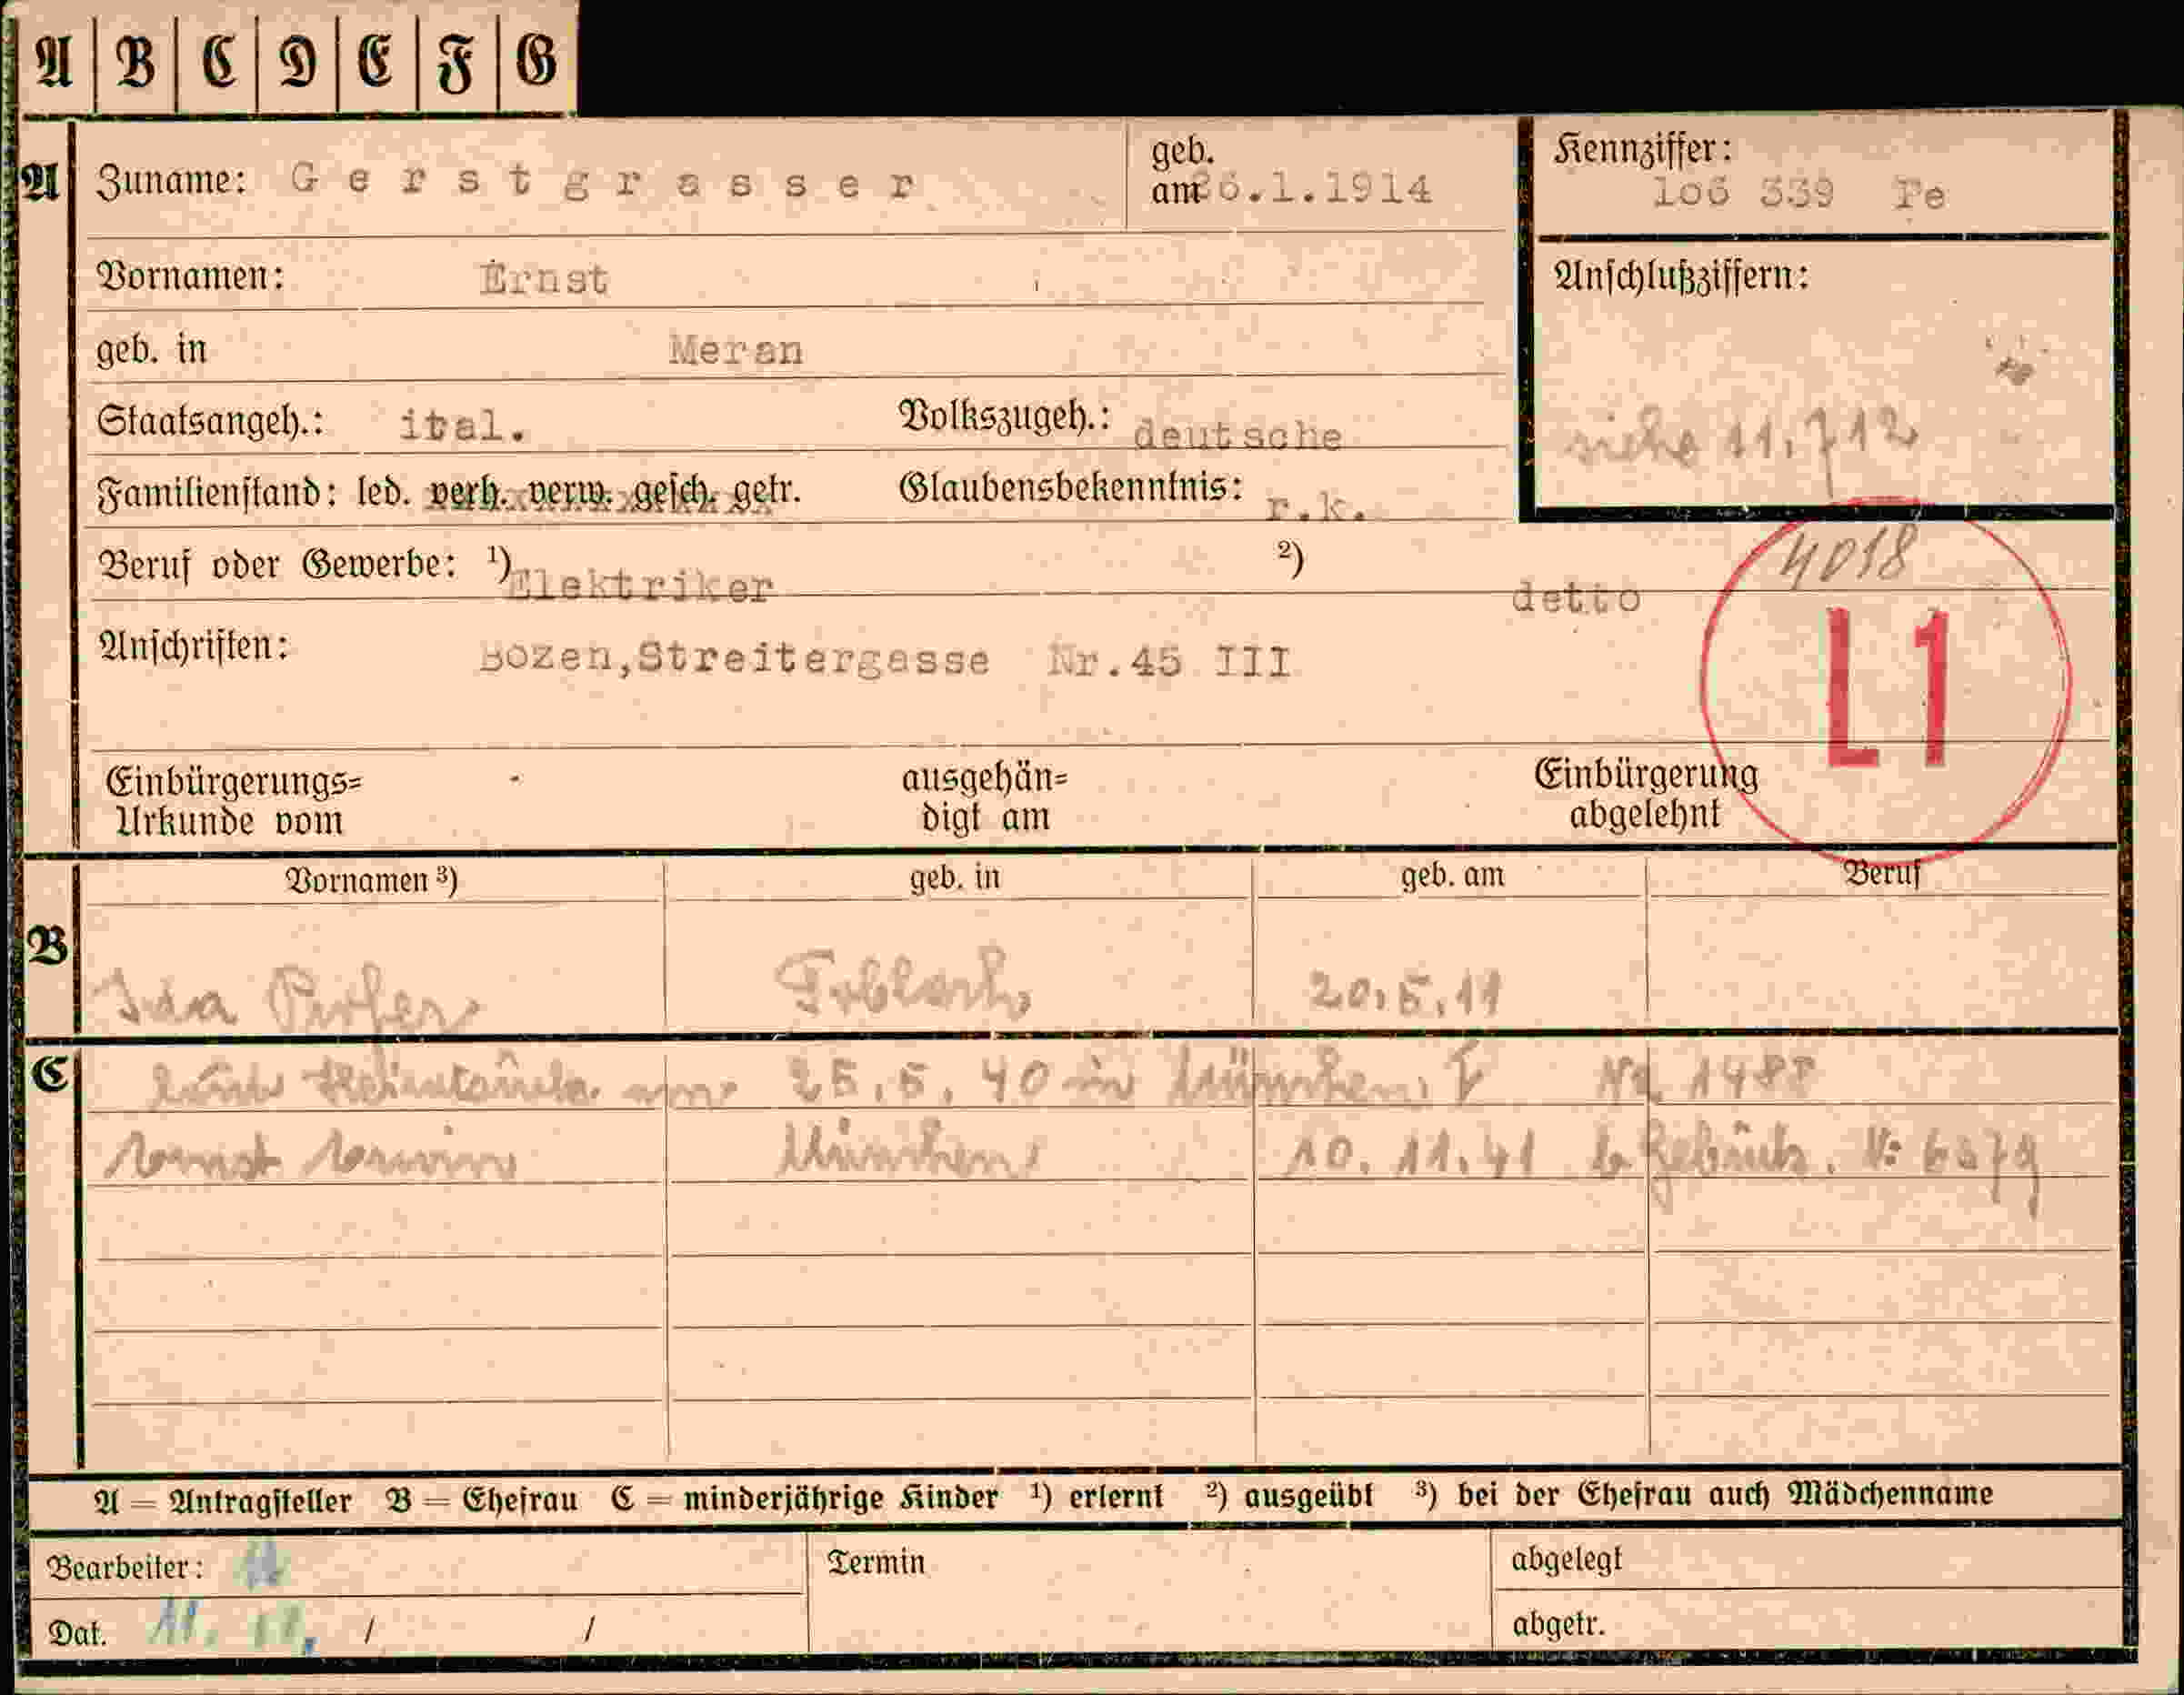 A B C D E F G
A Zuname: Gerstgrasser geb. am 26.1.1914 Kennziffer: 106 339 Pe
Vornamen: Ernst Anschlußziffern:
geb. in Meran
siehe 11.712
Staatsangeh.: ital. Volkszugeh.: deutsche
Familienstand: led. verh. verw. gesch. getr. Glaubensbekenntnis: r.k.
4018
Beruf oder Gewerbe: ¹) Elektriker ²) detto
L1
Anschriften: Bozen,Streitergasse Nr.45 III
Einbürgerungs= ausgehän= Einbürgerung
Urkunde vom digt am abgelehnt
Vornamen ³) geb. in geb. am Beruf
B Ida Toblach 20.5.11
C laut Heiratsurk. vom 25.5.40 in München I
Ernst Erwin München 10.11.41 Geburts.
A = Antragsteller B = Ehefrau C = minderjährige Kinder ¹) erlernt ²) ausgeübt ³) bei der Ehefrau auch Mädchenname
Bearbeiter: Termin abgelegt
Dat. 11. 11. / / abgetr.